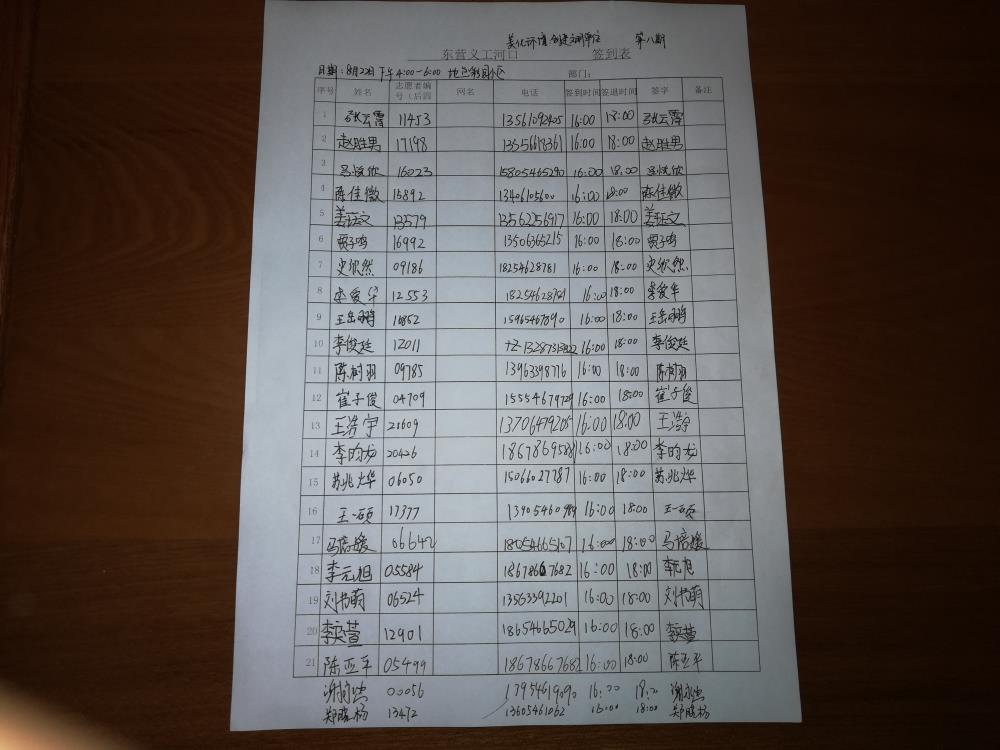 美化环境 创建文明单位 第八期
东营义工河口 签到表
日期：8月22日下午4:00-6:00 部门：
序号 姓名 志愿者编号（后四 网名 电话 签到时间 签退时间 签字 备注
1 张云霄 11453 13561092405 16:00 18:00 张云霄
2 赵胜男 17198 16:00 18:00 赵胜男
3 16023 15805465290 16:00 18:00
4 陈佳微 15892 13406105600 16:00 18:00 陈佳微
5 姜钰文 13579 13562256917 16:00 18:00 姜钰文
6 贾子鸣 16992 13506365215 16:00 18:00 贾子鸣
7 史欣然 09186 18254628781 16:00 18:00 史欣然
8 李爱华 12553 18254628781 16:00 18:00 李爱华
9 王岳鹏 15965467890 16:00 18:00 王岳鹏
10 李俊廷 12011 16:00 18:00 李俊廷
11 陈树羽 09785 13963398776 16:00 18:00 陈树羽
12 崔子俊 04709 15554679729 16:00 18:00 崔子俊
13 王浩宇 21609 13706479205 16:00 18:00 王浩宇
14 李昀龙 20426 16:00 18:00 李昀龙
15 苏兆烨 06050 15066027787 16:00 18:00 苏兆烨
16 王一硕 17377 16:00 18:00 王一硕
17 马培媛 06642 18054665107 16:00 18:00 马培媛
18 李元旭 05584 18678667682 16:00 18:00 李元旭
19 刘书萌 06524 13563392201 16:00 18:00 刘书萌
20 李奕萱 12901 18654665029 16:00 18:00 李奕萱
21 陈亚平 05499 18678667682 16:00 18:00 陈亚平
00056 17954619090 16:00 18:00
郑晓杨 13472 13605461062 16:00 18:00 郑晓杨